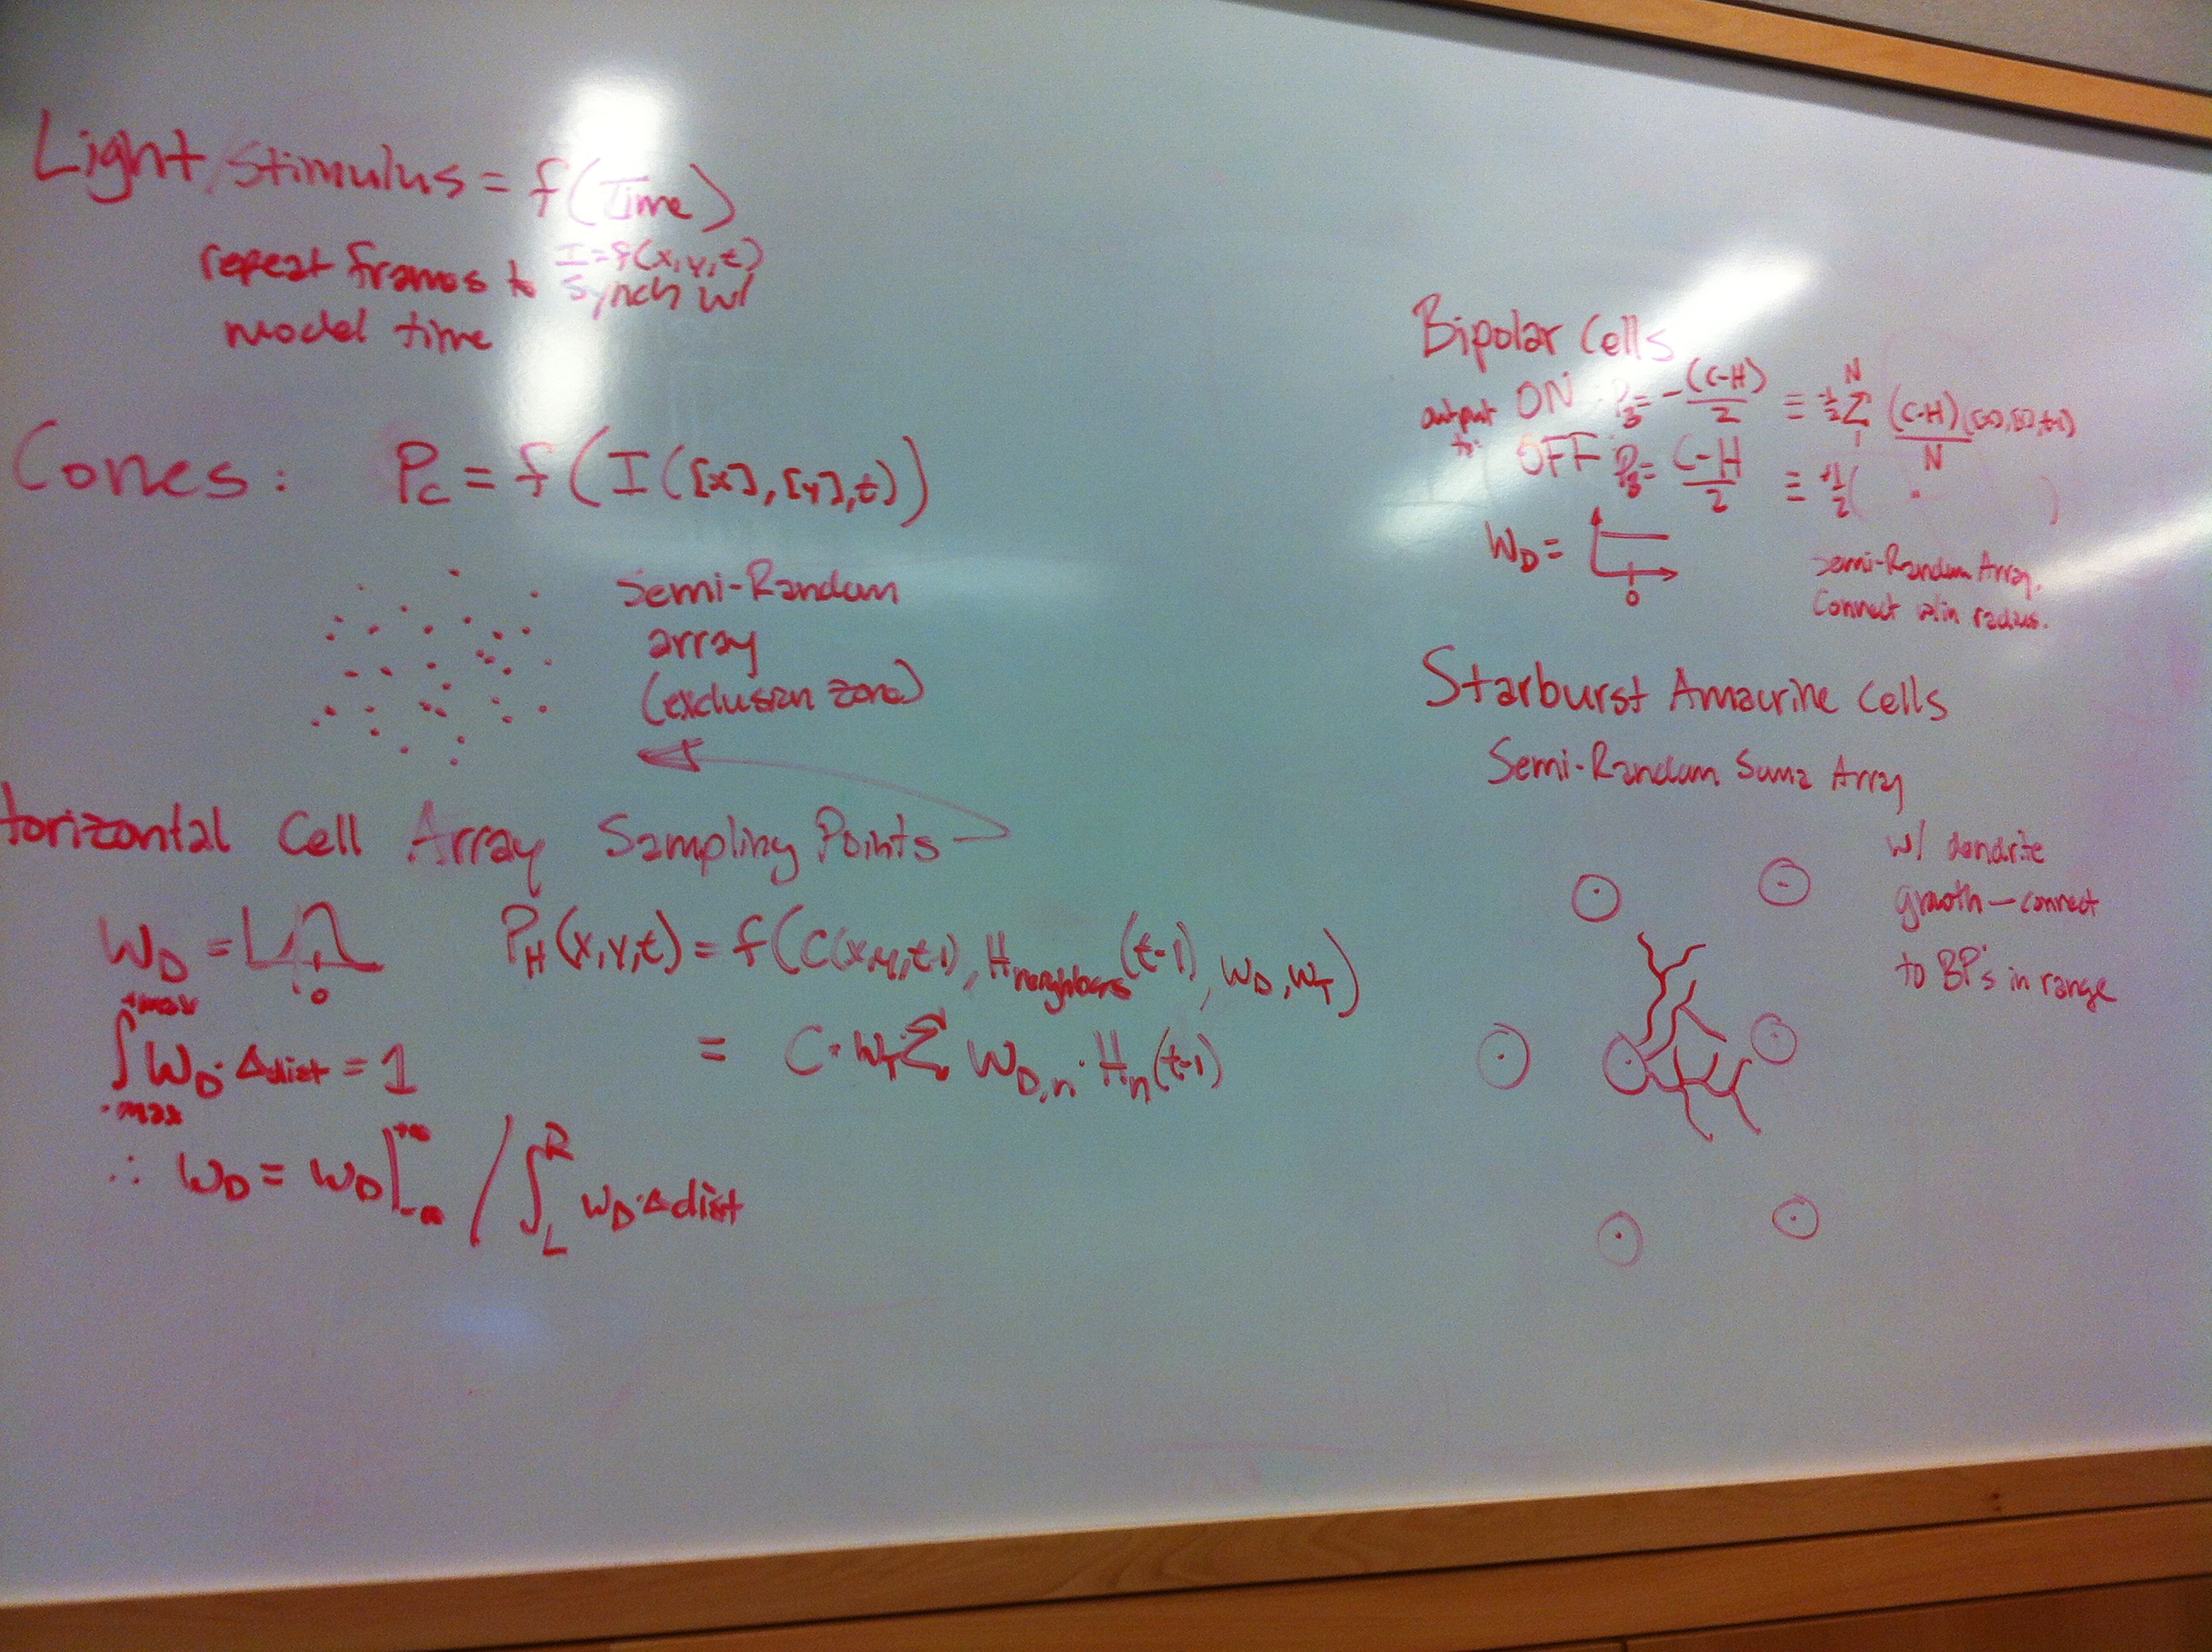 Light/Stimulus = f(Time)
I=f(x,y,t)
repeat frames to synch w/
model time
Cones: Pc = f(I([x],[y],t))
Semi-Random
array
(exclusion zone)
Horizontal Cell Array Sampling Points
W_D =
0
P_H(x,y,t) = f(C(x,y,t-1), H_neighbors(t-1), W_D, W_T)
= C · W_T Σ W_D,n · H_n(t-1)
∫ +max -max W_D · Δdist = 1
∴ W_D = W_D |+∞ -∞ / ∫ R L W_D · Δdist
Bipolar Cells
output to: ON : P_B = -(C-H)/2 ≡ -1/2 Σ N 1 (C-H)([x],[y],t-1)/N
OFF P_B = C-H/2 ≡ +1/2( " )
W_D =
0
Semi-Random Array.
Connect w/in radius.
Starburst Amacrine Cells
Semi-Random Soma Array
w/ dendrite
growth — connect
to BP's in range